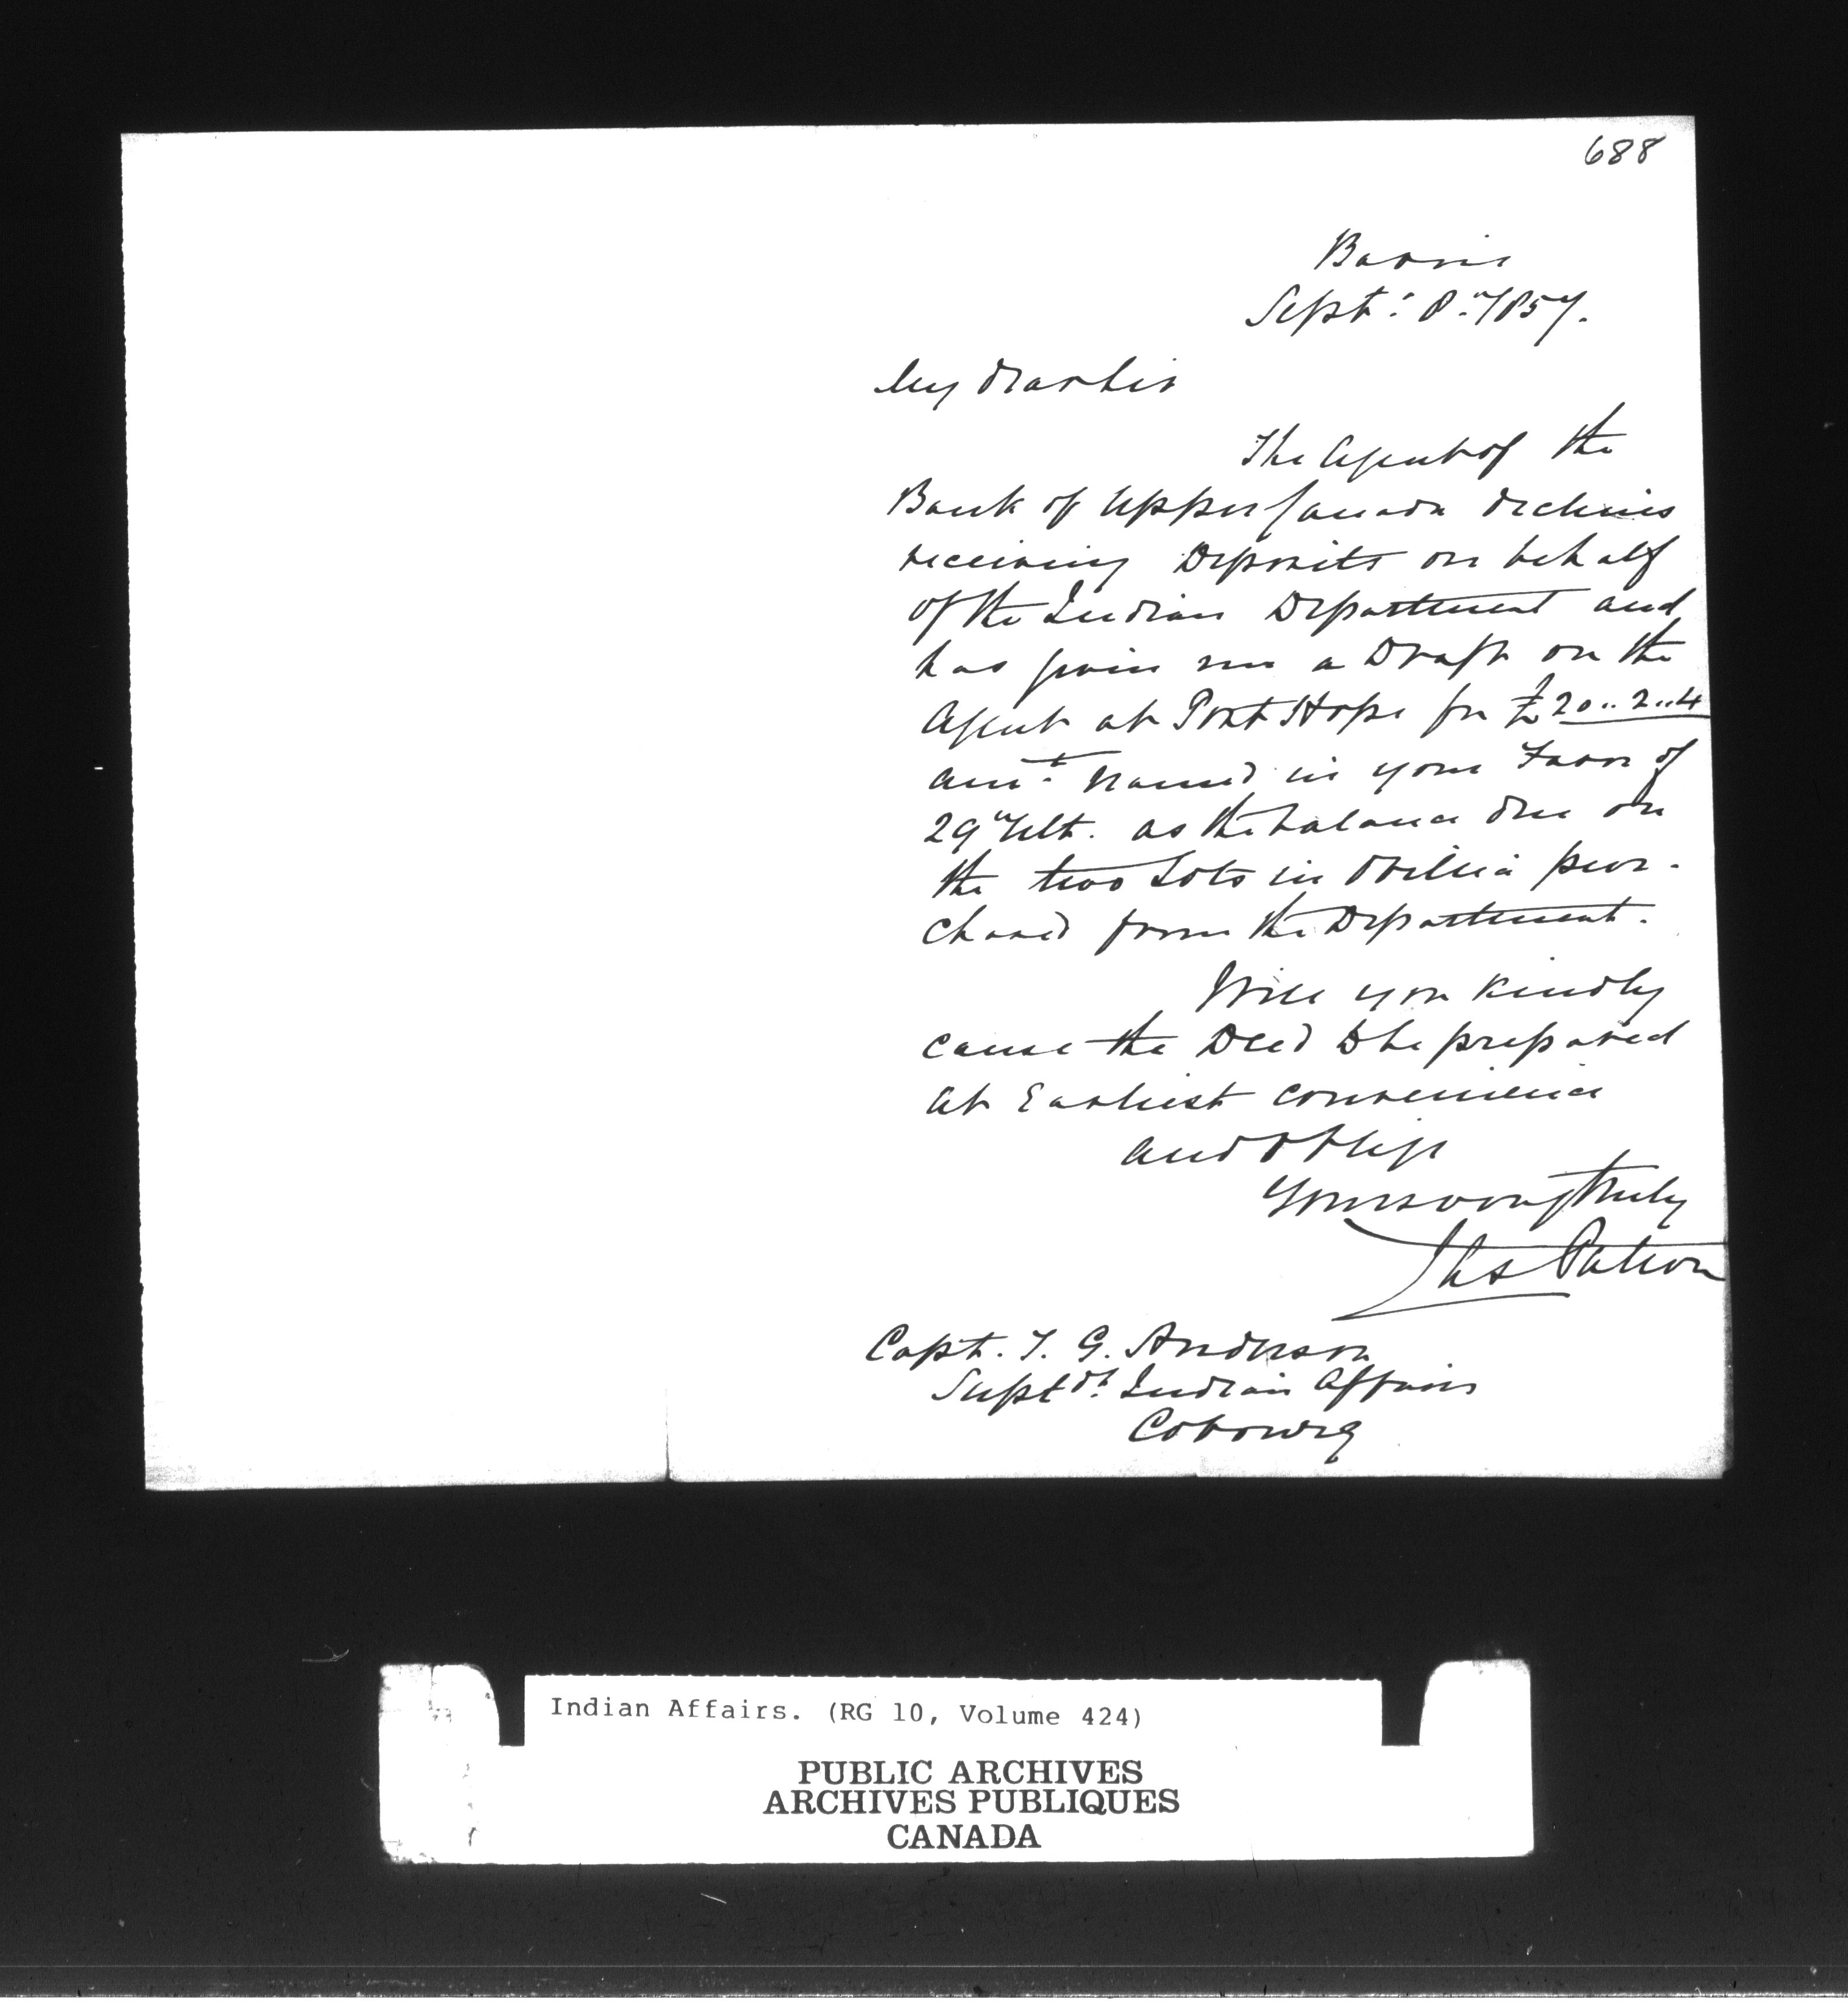 688
Barrie
Sept. 8th 1857.
My dear Sir
The Agent of the
Bank of Upper Canada declines
receiving Deposits on behalf
of the Indian Department and
has given me a Draft on the
Agent at Port Hope for £20..2..4
amt. named in your Favor of
29th Ult. as the balance due on
the two Lots in Orillia pur-
chased from the Department.
Will you kindly
cause the Deed to be prepared
at Earliest convenience
and oblige
Yours very truly
Jas Patton
Capt. T. G. Anderson
Supt dt. Indian Affairs
Cobourg
Indian Affairs. (RG 10, Volume 424)
PUBLIC ARCHIVES
ARCHIVES PUBLIQUES
CANADA